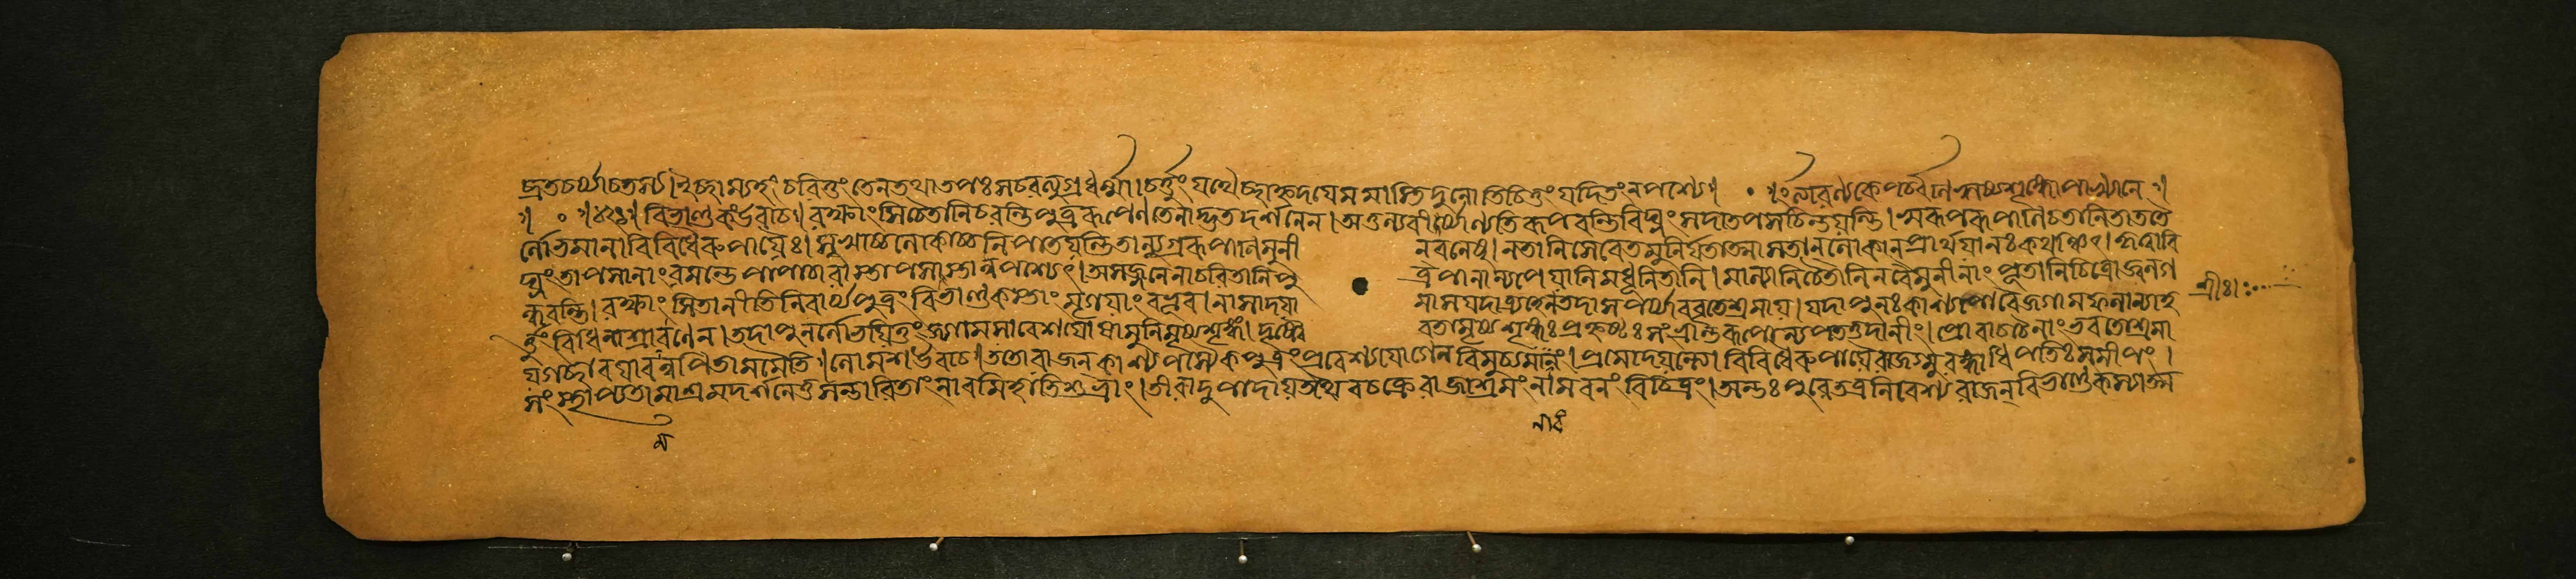 দ্ব্রতচর্য্যাচতস্য। ইচ্ছাম্যহং চরিতুং তেন তথা তপঃ সচরত্যুগ্রধর্ম্মা। চর্ত্তুং যথেচ্ছাহৃদয়েমমাস্তি দুনোতিচিত্তং যদিতং ন পশ্যে॥ • ॥ ইত্যারণ্যকেপর্ব্বণি ঋষ্যশৃঙ্গোপাখ্যানে॥
॥ ॰ ॥ বিভাণ্ডক উবাচ। রক্ষাংসিচৈতানিচরন্তিপুত্ররূপেণ তেনাদ্ভুতদর্শনেন। অতুল্যবীর্য্যাণ্যতিরূপবন্তি বিঘ্নং সদাতপসশ্চিন্তয়ন্তি। সুরূপরূপাণিচতানিতাততে
র্লোভমানাবিবিধৈরুপায়ৈঃ। সুখাচ্চলোকাচ্চনিপাতয়ন্তিতান্যুগ্ররূপাণিমুনী নবনেষু। নতানিসেবেতমুনির্যতাত্মা সতান্ লোকান্ প্রার্থয়ানঃ কথঞ্চিৎ। কৃত্বাবি
ঘ্নং তাপসানাং রমন্তে পাপাচারাস্তাপসাস্তান্নপশ্যেৎ। অসজ্জনেনাচরিতানিপু ত্র পানান্যপেয়ানিমধূনিতানি। মাল্যানিচৈতানিনবৈমুনীনাং স্মৃতানিচিত্রোজ্জ্বলগ
ন্ধবন্তি। রক্ষাংসিতানীতিনিবার্য্যপুত্রং বিভাণ্ডকস্তাং মৃগয়াং বভূব। নাসাদয়া মাসযদাত্র্যহেন তদাসপর্য্যাববৃতেশ্রমায়। যদাপুনঃ কাশ্যপোবৈজগামফলান্যাহ
র্ত্তুং বিধিনাশ্রাবণেন। তদাপুনর্লোভয়িতুং জগামসাবেশযোষামুনিমৃষ্যশৃঙ্গং। দৃষ্ট্বৈ বতামৃষ্যশৃঙ্গঃ প্রহৃষ্টঃ সংভ্রান্তরূপোভ্যপতত্তদানীং। প্রোবাচচৈনাং ভবতোশ্রমা
য়গচ্ছাবযাবন্নপিতামমৈতি। লোমশ উবাচ। ততোরাজন্ কাশ্যপস্যৈকপুত্রং প্রবেশ্যযোগেন বিমুচ্যনাবং। প্রমোদয়ন্ত্যোবিবিধৈরুপায়ৈরাজগ্মুরঙ্গাধিপতিঃ সমীপং।
সংস্থাপ্যতামাশ্রমদর্শনেতুসন্তারিতাং নাবমিবাতিশুভ্রাং। তীরাদুপাদায়তথৈবচক্রেরাজাশ্রমং নামবনং বিচিত্রং। অন্তঃপুরেতত্রনিবেশ্য রাজন্ বিভাণ্ডকস্যাত্ম
শ্রীঃ।